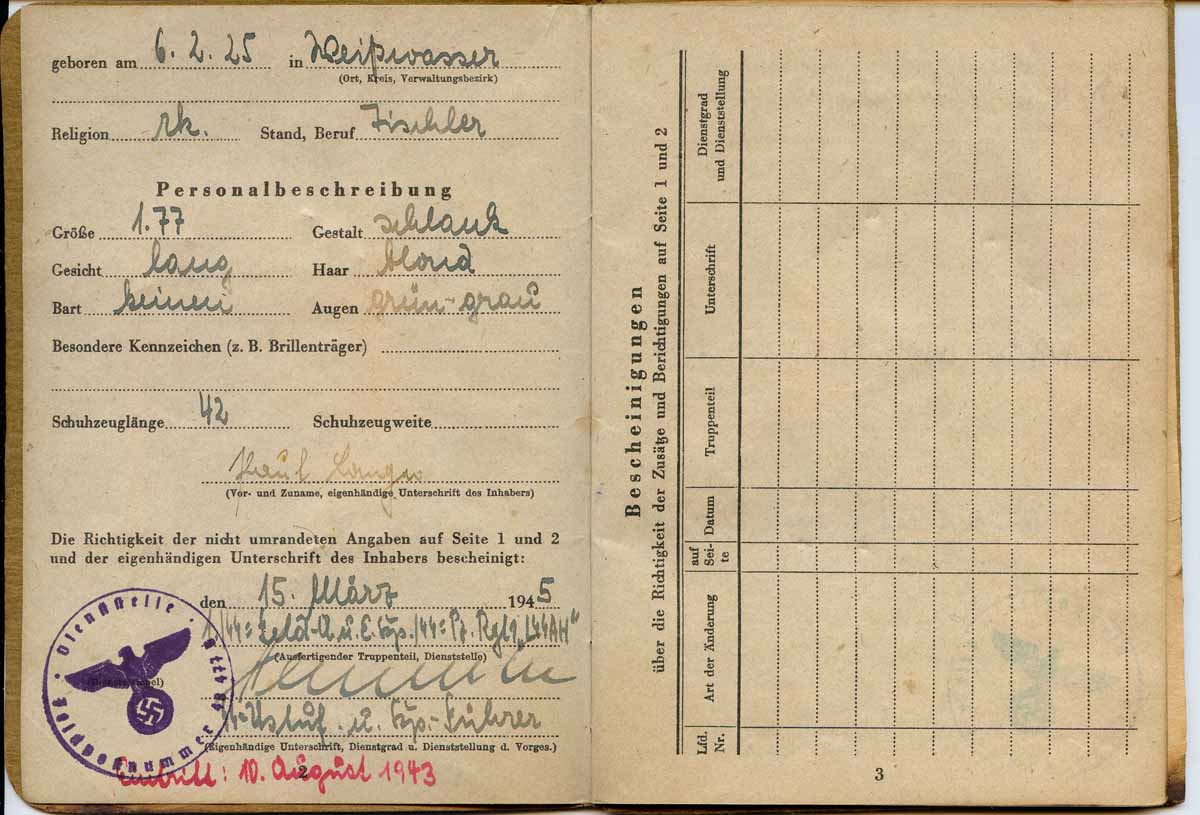 geboren am 6. 2. 25 in Weißwasser
(Ort, Kreis, Verwaltungsbezirk)
Religion rk. Stand, Beruf Tischler
Personalbeschreibung
Größe 1.77 Gestalt schlank
Gesicht lang Haar blond
Bart keinen Augen grün-grau
Besondere Kennzeichen (z. B. Brillenträger)
Schuhzeuglänge 42 Schuhzeugweite
Paul Langer
(Vor- und Zuname, eigenhändige Unterschrift des Inhabers)
Die Richtigkeit der nicht umrandeten Angaben auf Seite 1 und 2
und der eigenhändigen Unterschrift des Inhabers bescheinigt:
den 15. März 1945
(Ausfertigender Truppenteil, Dienststelle)
(Dienststempel)
Dienststelle · Feldpostnummer
Ustuf. u. Kp.-Führer
(Eigenhändige Unterschrift, Dienstgrad u. Dienststellung d. Vorges.)
Eintritt: 10. August 1943
2
Bescheinigungen
über die Richtigkeit der Zusätze und Berichtigungen auf Seite 1 und 2
Lfd. Nr.
Art der Änderung
auf Sei- te
Datum
Truppenteil
Unterschrift
Dienstgrad und Dienststellung
3